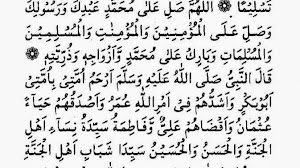 تَسْلِيْمًا ۞ اَللّٰهُمَّ صَلِّ عَلٰى مُحَمَّدٍ عَبْدِكَ وَرَسُوْلِكَ
وَصَلِّ عَلَى الْمُؤْمِنِيْنَ وَالْمُؤْمِنٰتِ وَالْمُسْلِمِيْنَ
وَالْمُسْلِمَاتِ وَبَارِكْ عَلٰى مُحَمَّدٍ وَّاَزْوَاجِهٖ وَذُرِّيَّتِهٖ ۞
قَالَ النَّبِيُّ صَلَّى اللّٰهُ عَلَيْهِ وَسَلَّمَ اَرْحَمُ اُمَّتِيْ بِاُمَّتِيْ
اَبُوْبَكْرٍ وَاَشَدُّهُمْ فِيْ اَمْرِ اللّٰهِ عُمَرُ وَاَصْدَقُهُمْ حَيَاءً
عُثْمَانُ وَاَقْضَاهُمْ عَلِيٌّ وَفَاطِمَةُ سَيِّدَةُ نِسَاءِ اَهْلِ
الْجَنَّةِ وَالْحَسَنُ وَالْحُسَيْنُ سَيِّدَا شَبَابِ اَهْلِ الْجَنَّةِ